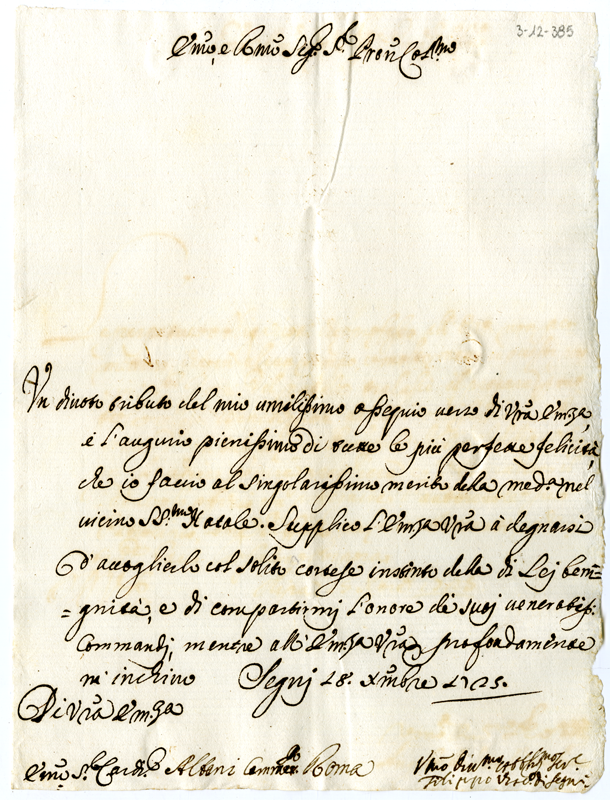 3-12-385
Emo, e Rmo Sigr. Sr. Pron Colmo
Un divoto tributo del mio umilissimo ossequio verso di Vra Emza
è l'augurio pienissimo di tutte le più perfette felicità,
che io faccio al singolarissimo merito della medª nel
vicino SSmo Natale. Supplico l'Emza Vra à degnarsi
d'accoglierlo col solito cortese instinto della di Lej beni=
=gnità, e di compartirmj l'onore de suoj venerabiss:
Commandj, mentre all'Emza Vra profondamente
m'inchino Segnj 18. Xmbre 1725.
Di Vra Emza
Emo Sr. Card. Albani Camerlo Roma
Umo Divmo Servre
Filippo Vescº di Segnj